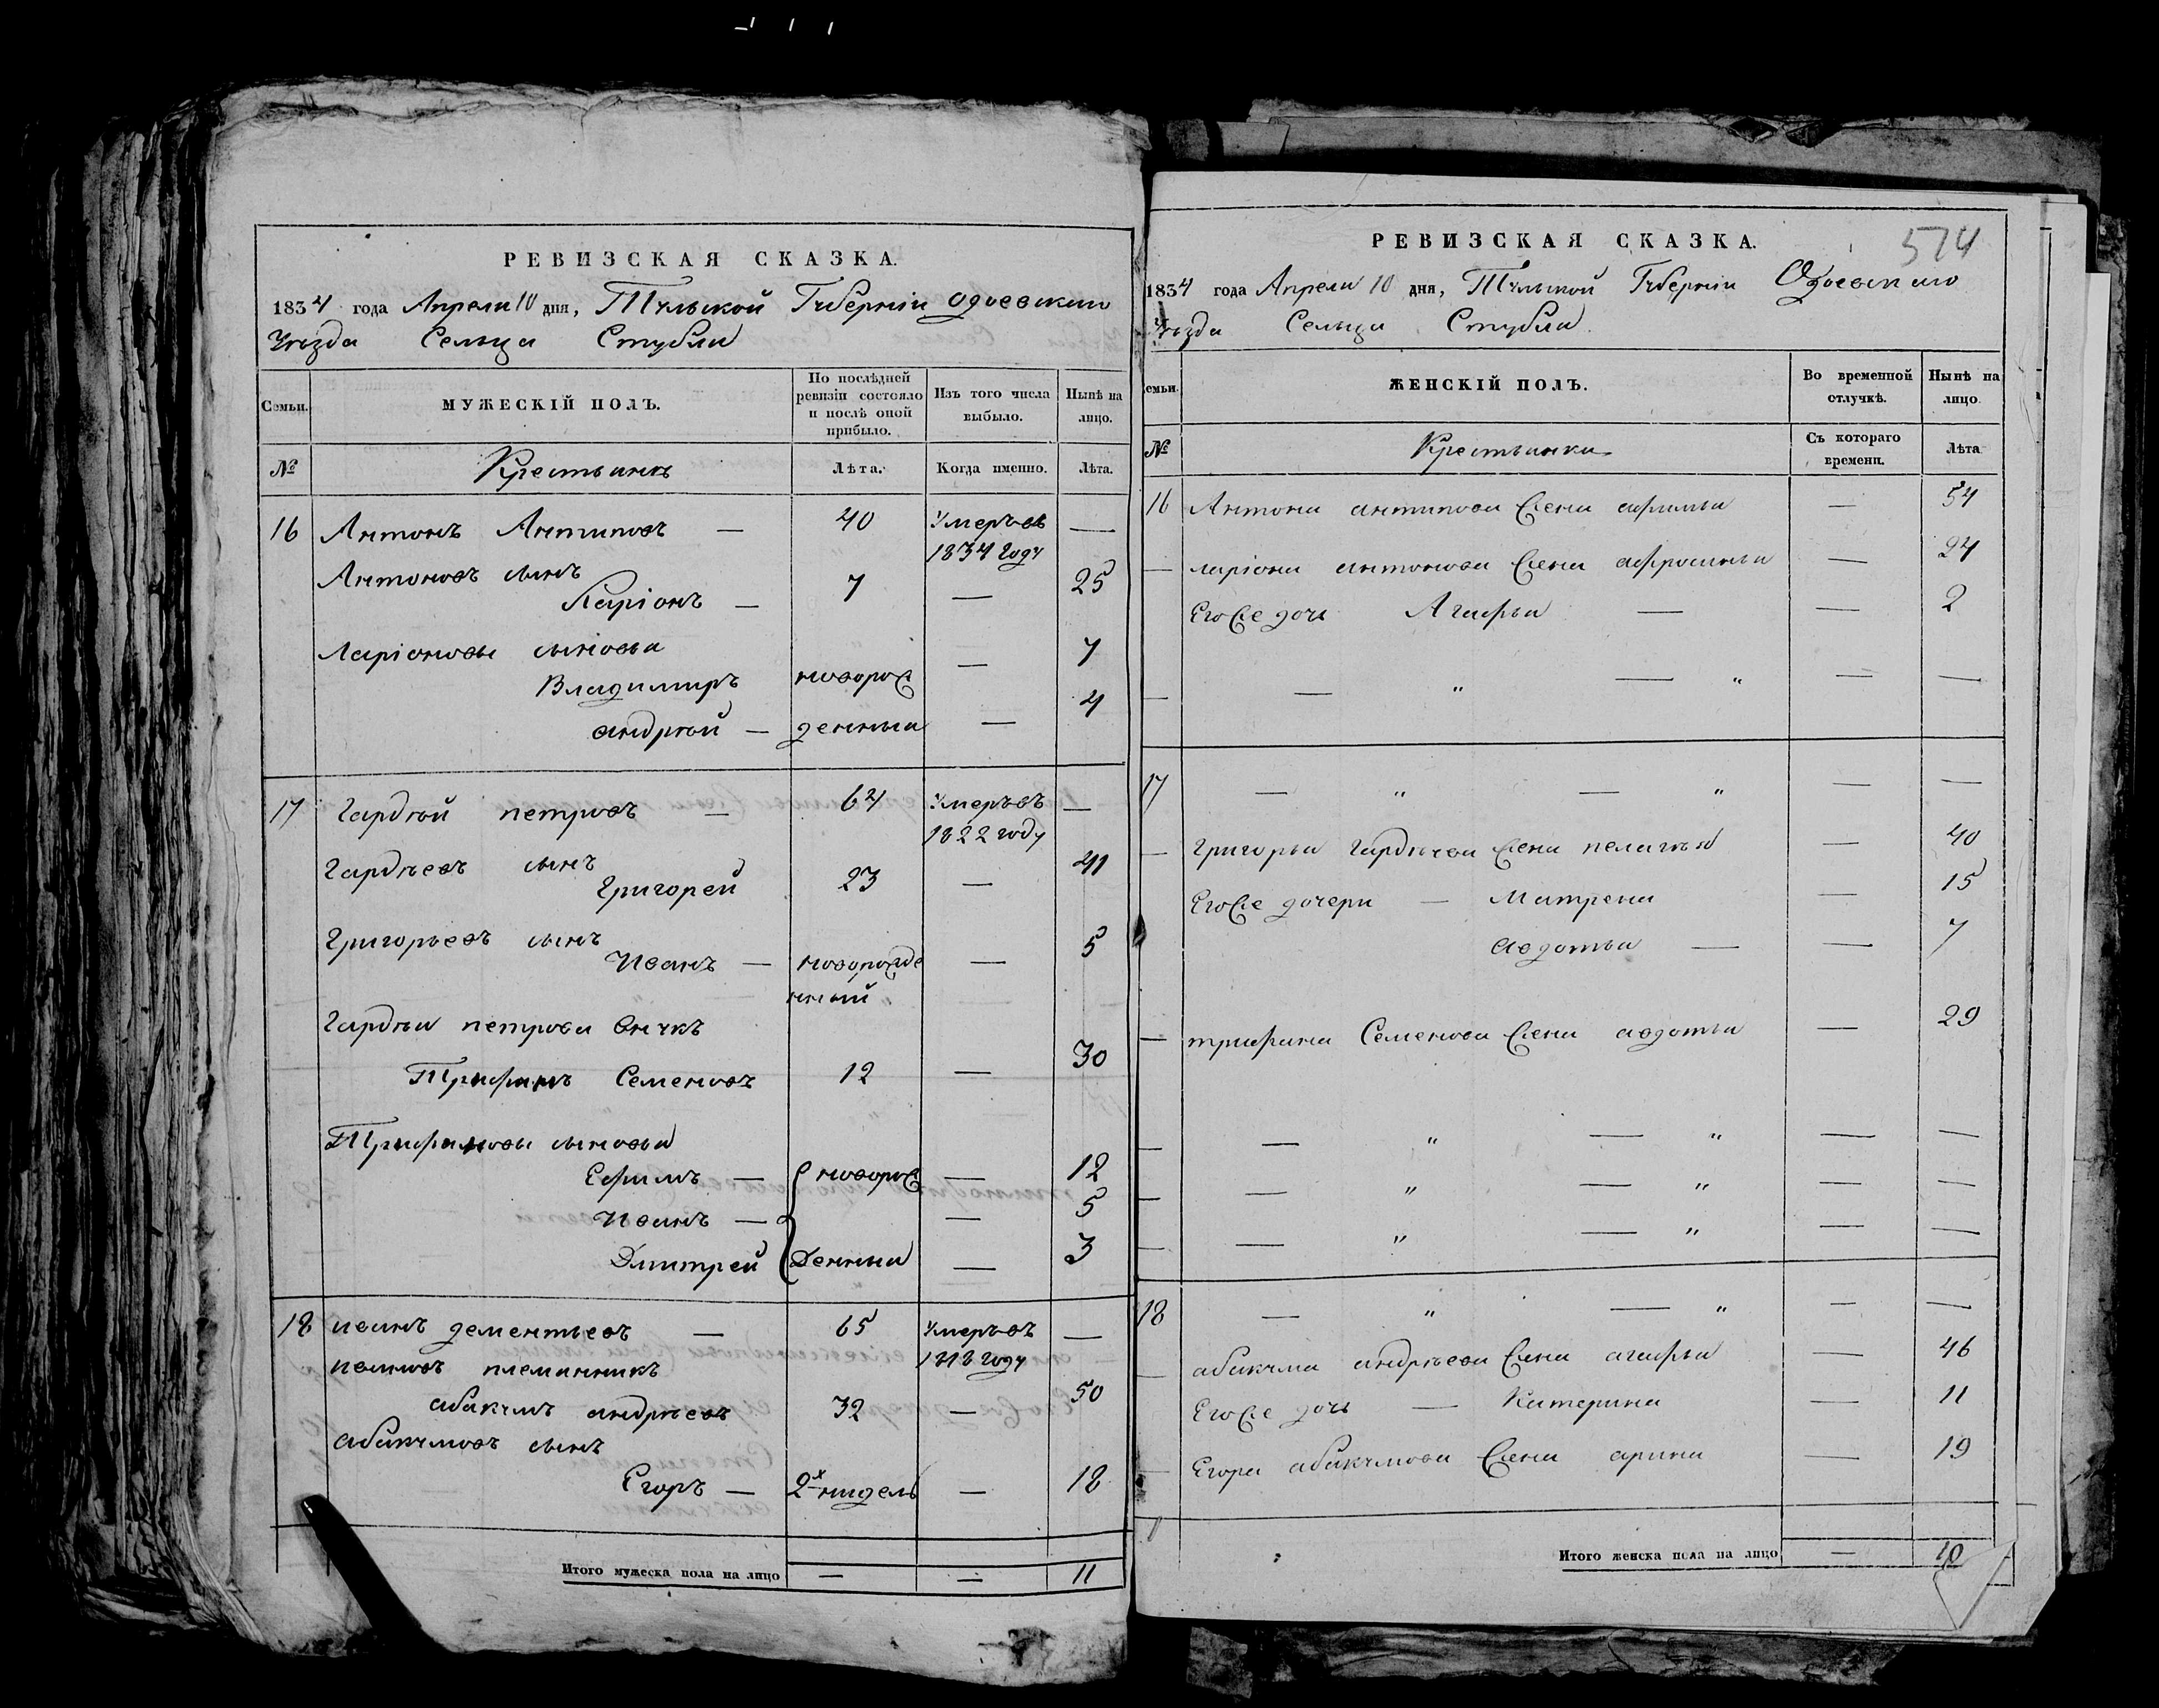 РЕВИЗСКАЯ СКАЗКА.
1834 года Апреля 10 дня, Тульской Губерніи Одоевскаго
Уезда Сельца Стубли
Семьи.
МУЖЕСКІЙ ПОЛЪ.
По послѣдней ревизіи состояло и послѣ оной прибыло.
Изъ того числа выбыло.
Нынѣ на лицо.
№ Крестьянъ Лѣта. Когда именно. Лѣта.
16 Антонъ Антиповъ — 40 Умеръ въ —
1834 году
Антоновъ сынъ
Ларіонъ — 7 — 25
Ларіоновы сыновья
Владимиръ новорож — 7
андрѣй — денныя — 4
17 Гардѣй петровъ — 64 Умеръ въ —
1822 году
Гардѣевъ сынъ
Григорей 23 — 41
Григорьевъ сынъ
Иванъ — новорожде — 5
нный
Гардѣя петрова внукъ
Трифанъ Семеновъ 12 — 30
Трифановы сыновья
Ефимъ — новорож — 12
Иванъ — — 5
Дмитрей денныя — 3
18 иванъ дементьевъ — 65 Умеръ въ —
1818 году
ивановъ племянникъ
абакумъ андрѣевъ 32 — 50
абакумовъ сынъ
Егоръ — 2х нидель — 18
Итого мужеска пола на лицо — — 11
574
РЕВИЗСКАЯ СКАЗКА.
1834 года Апреля 10 дня, Тульской Губерніи Одоевскаго
Уезда Сельца Стубли.
емьи.
ЖЕНСКІЙ ПОЛЪ.
Во временной отлучкѣ.
Нынѣ на лицо
№ Крестьянки Съ котораго времени. Лѣта
16 Антона антипова жена афимья — 54
— ларіона антонова жена афросинья — 24
Его же дочь Агафья — — 2
— — " — " — —
17 — " — " — —
— Григорья гардѣева жена пелагѣя — 40
Его же дочери — Матрена — 15
авдотья — — 7
— трифана Семенова жена авдотья — 29
— — " — " — —
— — " — " — —
— — " — " — —
18 — " — " — —
— абакума андрѣева жена агафья — 46
Его же дочь — Катерина — 11
— Егора абакумова жена арина — 19
Итого женска пола на лицо — 10